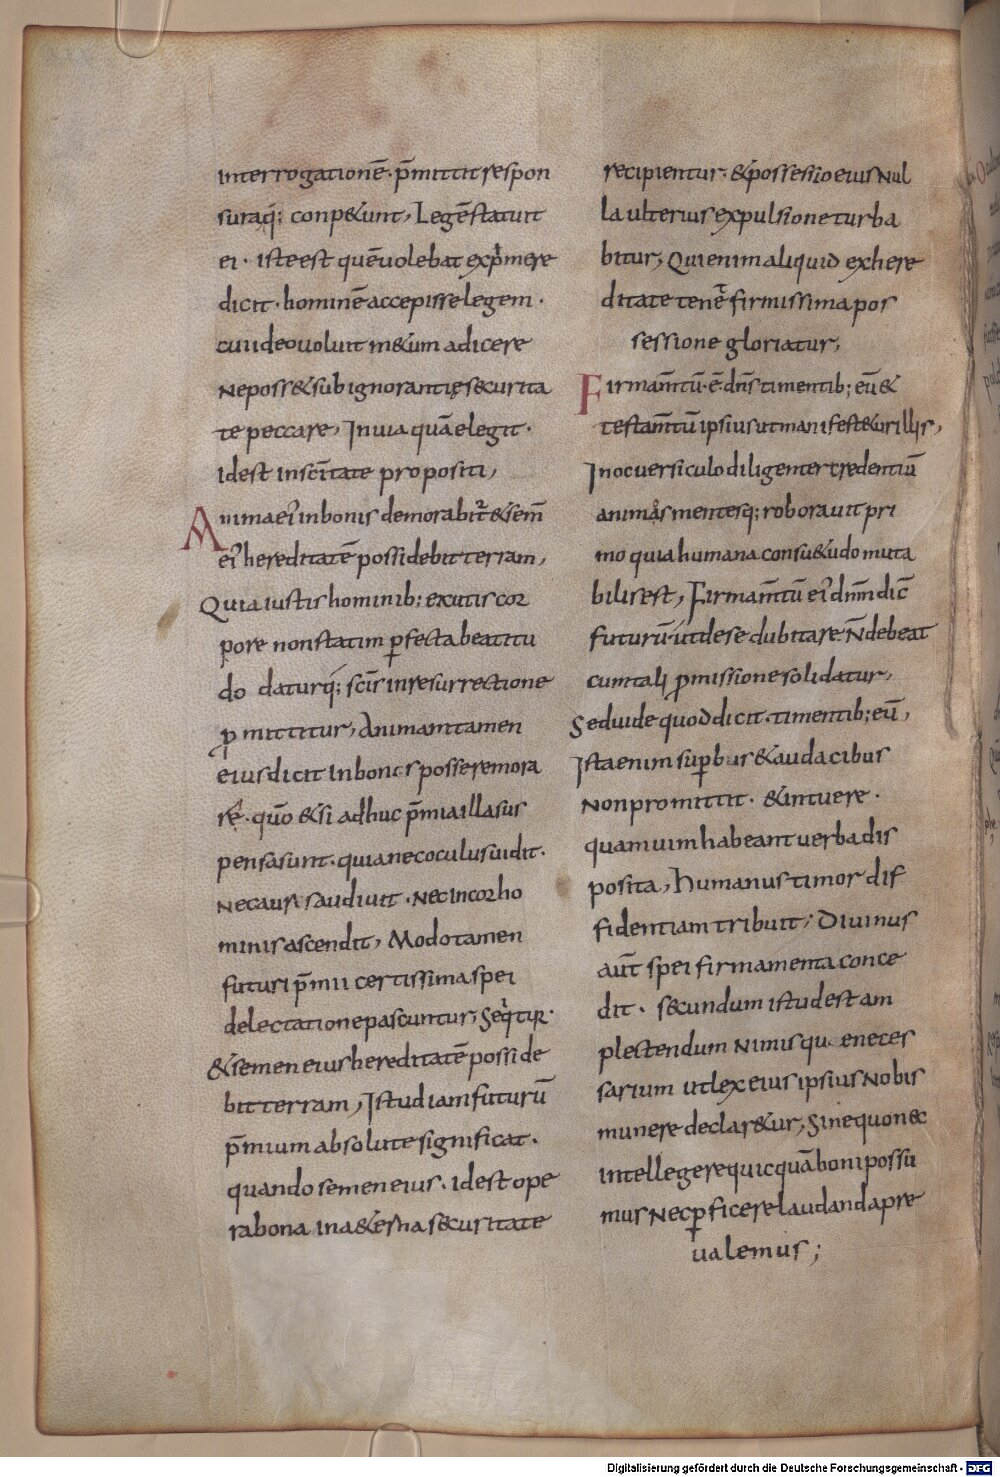 interrogationē· p̄mittit respon
suraq́; conp&unt, Legē statuit
ei· iste est quē uolebat exp̍mere
dicit· hominē accepisse legem·
cui ideo uoluit m&um adicere
Ne poss& sub ignorantię securita
te peccare, In uia quā elegit·
idest in sc̄itate propositi,
Anima ei᾽ in bonis demorabit̄ & sem̄
ei᾽ hereditatē possidebit terram,
Quia iustis hominib; exutis cor
pore non statim ꝑfecta beatitu
do daturq́; sc̄is in resurrectione
ꝓmittitur, Animam tamen
eius dicit in bonis posse remora
rę· quō &si adhuc p̄mia illa sus
pensa sunt· quia nec oculus uidit·
Nec auris audiuit· Nec in cor ho
minis ascendit, Modo tamen
futuri p̄mii certissima spei
delectatione pascuntur, Seq̍tur·
& semen eius hereditatē posside
bit terram, Istud iam futurū
p̄mium absolute significat·
quando semen eius· idest ope
ra bona in a&erna securitate
recipientur· & possessio eius Nul
la ulterius expulsione turba
bitur, Qui enim aliquid ex here
ditate ten&̄ firmissima pos
sessione gloriatur,
Firmam̄tū· ē· dn̄s timentib; eū &
testam̄tū ipsius ut manifest&ur illis,
In oc uersiculo diligenter credentiū
animas mentesq; roborauit pri
mo quia humana consu&udo muta
bilis est, Firmam̄tū ei᾽ dn̄m dic̄
futurū· ut de se dubitare N̄ debeat
cum tali ꝓmissione solidatur,
Sed uide quod dicit· timentib; eū,
Ista enim suꝑbis & audacibus
Non promittit· & intuere·
quam uim habeant uerba dis
posita, Humanus timor dif
fidentiam tribuit; Diuinus
aut̄ spei firmamenta conce
dit· secundum istud est am
plectendum Nimisque neces
sarium ut lex eius ipsius Nobis
munere declar&ur, Sine quo nec
intellegere quicquā boni possu
mus Nec ꝑficere laudanda pre
ualemus;
Digitalisierung gefördert durch die Deutsche Forschungsgemeinschaft - DFG